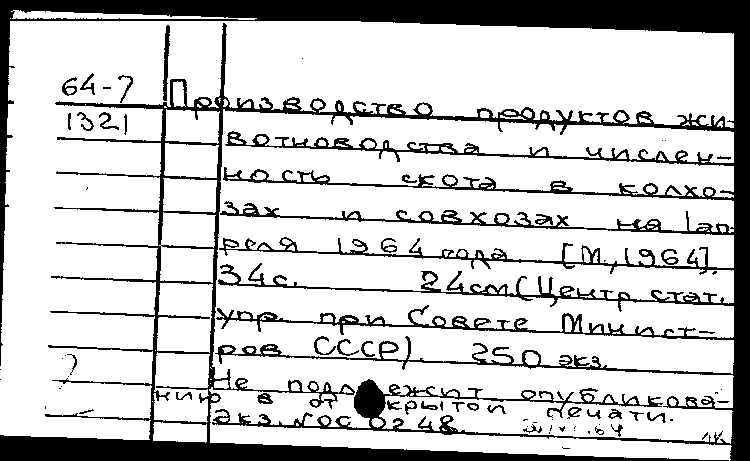 64-7
1321
Производство продуктов жи-
вотноводства и числен-
ность скота в колхо-
зах и совхозах на 1 ап
реля 1964 года. [М., 1964].
34с. 24см (Центр. стат.
упр. при Совете Минист-
ров СССР). 250 экз.
Не подлежит опубликова-
нию в открытой печати.
Экз. № ОС 0248.